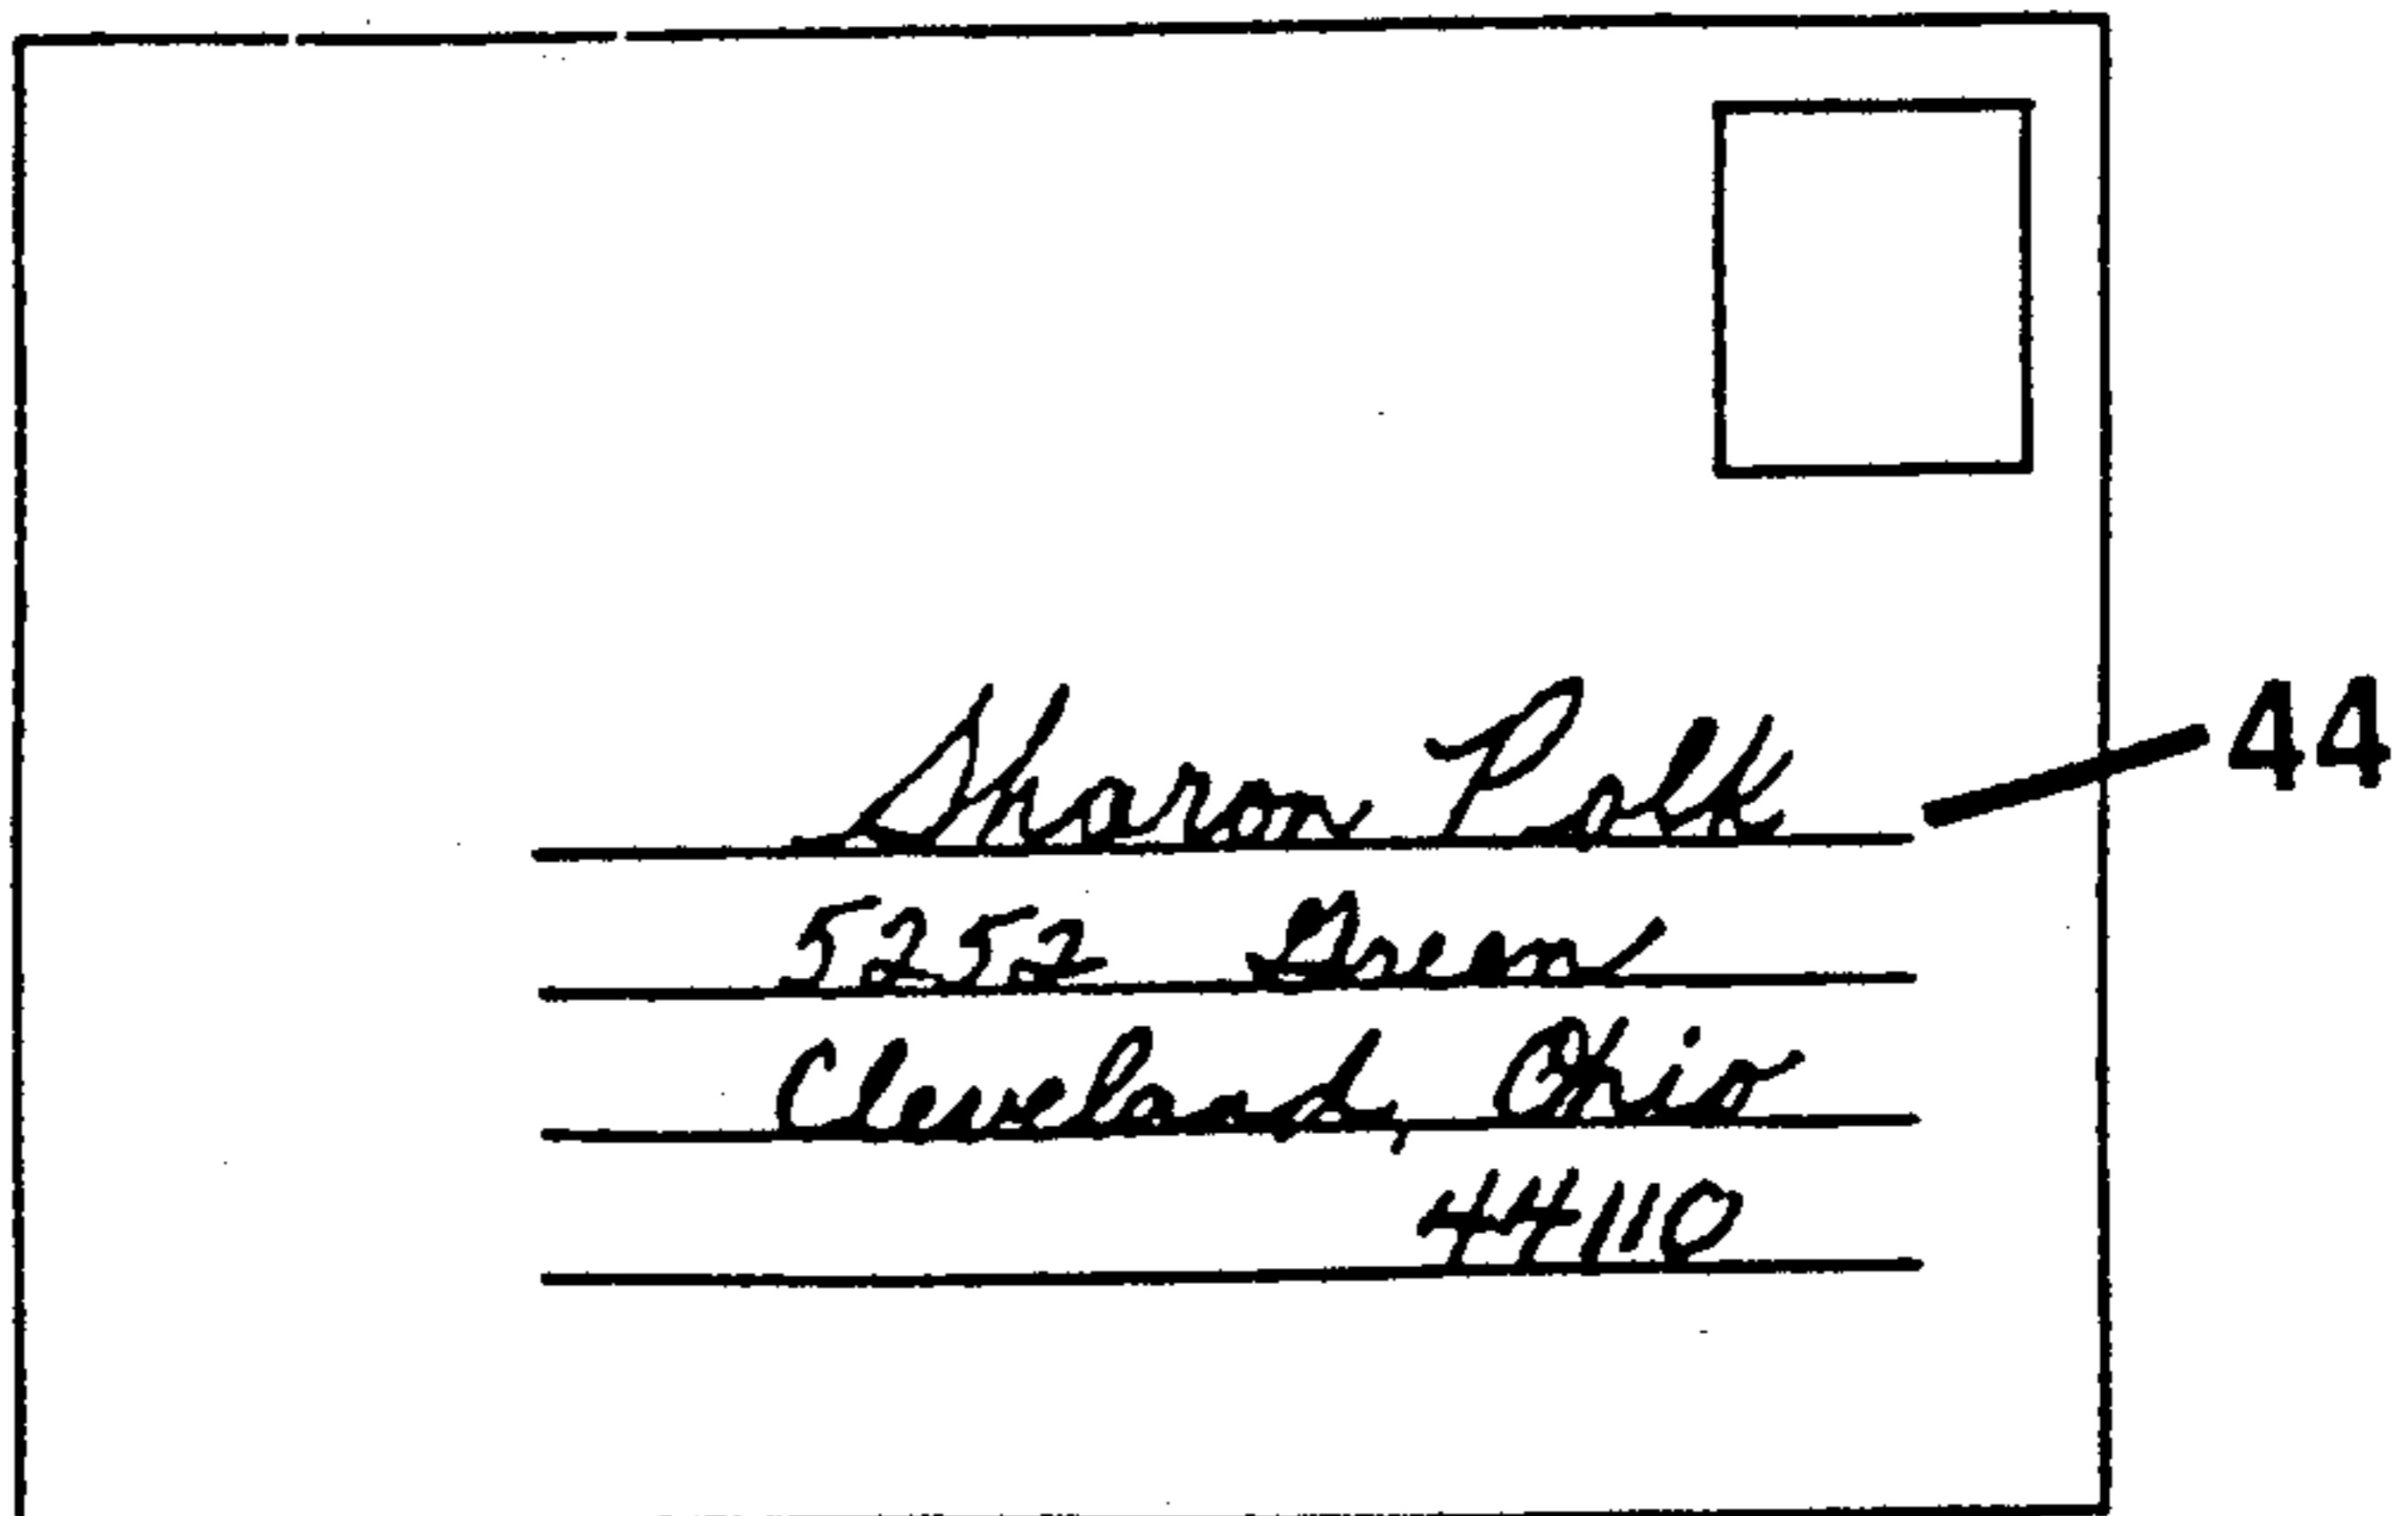 Sharon Polk
44
5252 Green
Cleveland, Ohio
44110